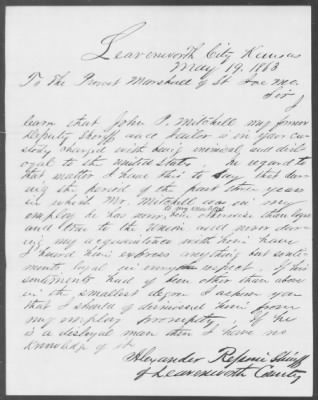 Leavenworth City Kansas
May 19. 1863
To the Provost Marshall of St Joe Mo.
Sir
I
learn that John P. Mitchell my former
Deputy Sheriff and Jailor is in your cus-
tody charged with being inimical and disl-
oyal to the United States. In regard to
that matter I have this to say that dur-
ing the period of the past three years
in which Mr. Mitchell was in my
employ he has never been otherwise than loyal
to my knowledge
and true to the Union and never dur-
ing my acquaintance with him have
I heard him express anything but senti-
ments loyal in every respect. if his
sentiments had of been other than above
in the smallest degree
that I should of dismissed him from
my employ promptly if he
is a disloyal man then I have no
knowledge of it
Alexander Sheriff
of Leavenworth County